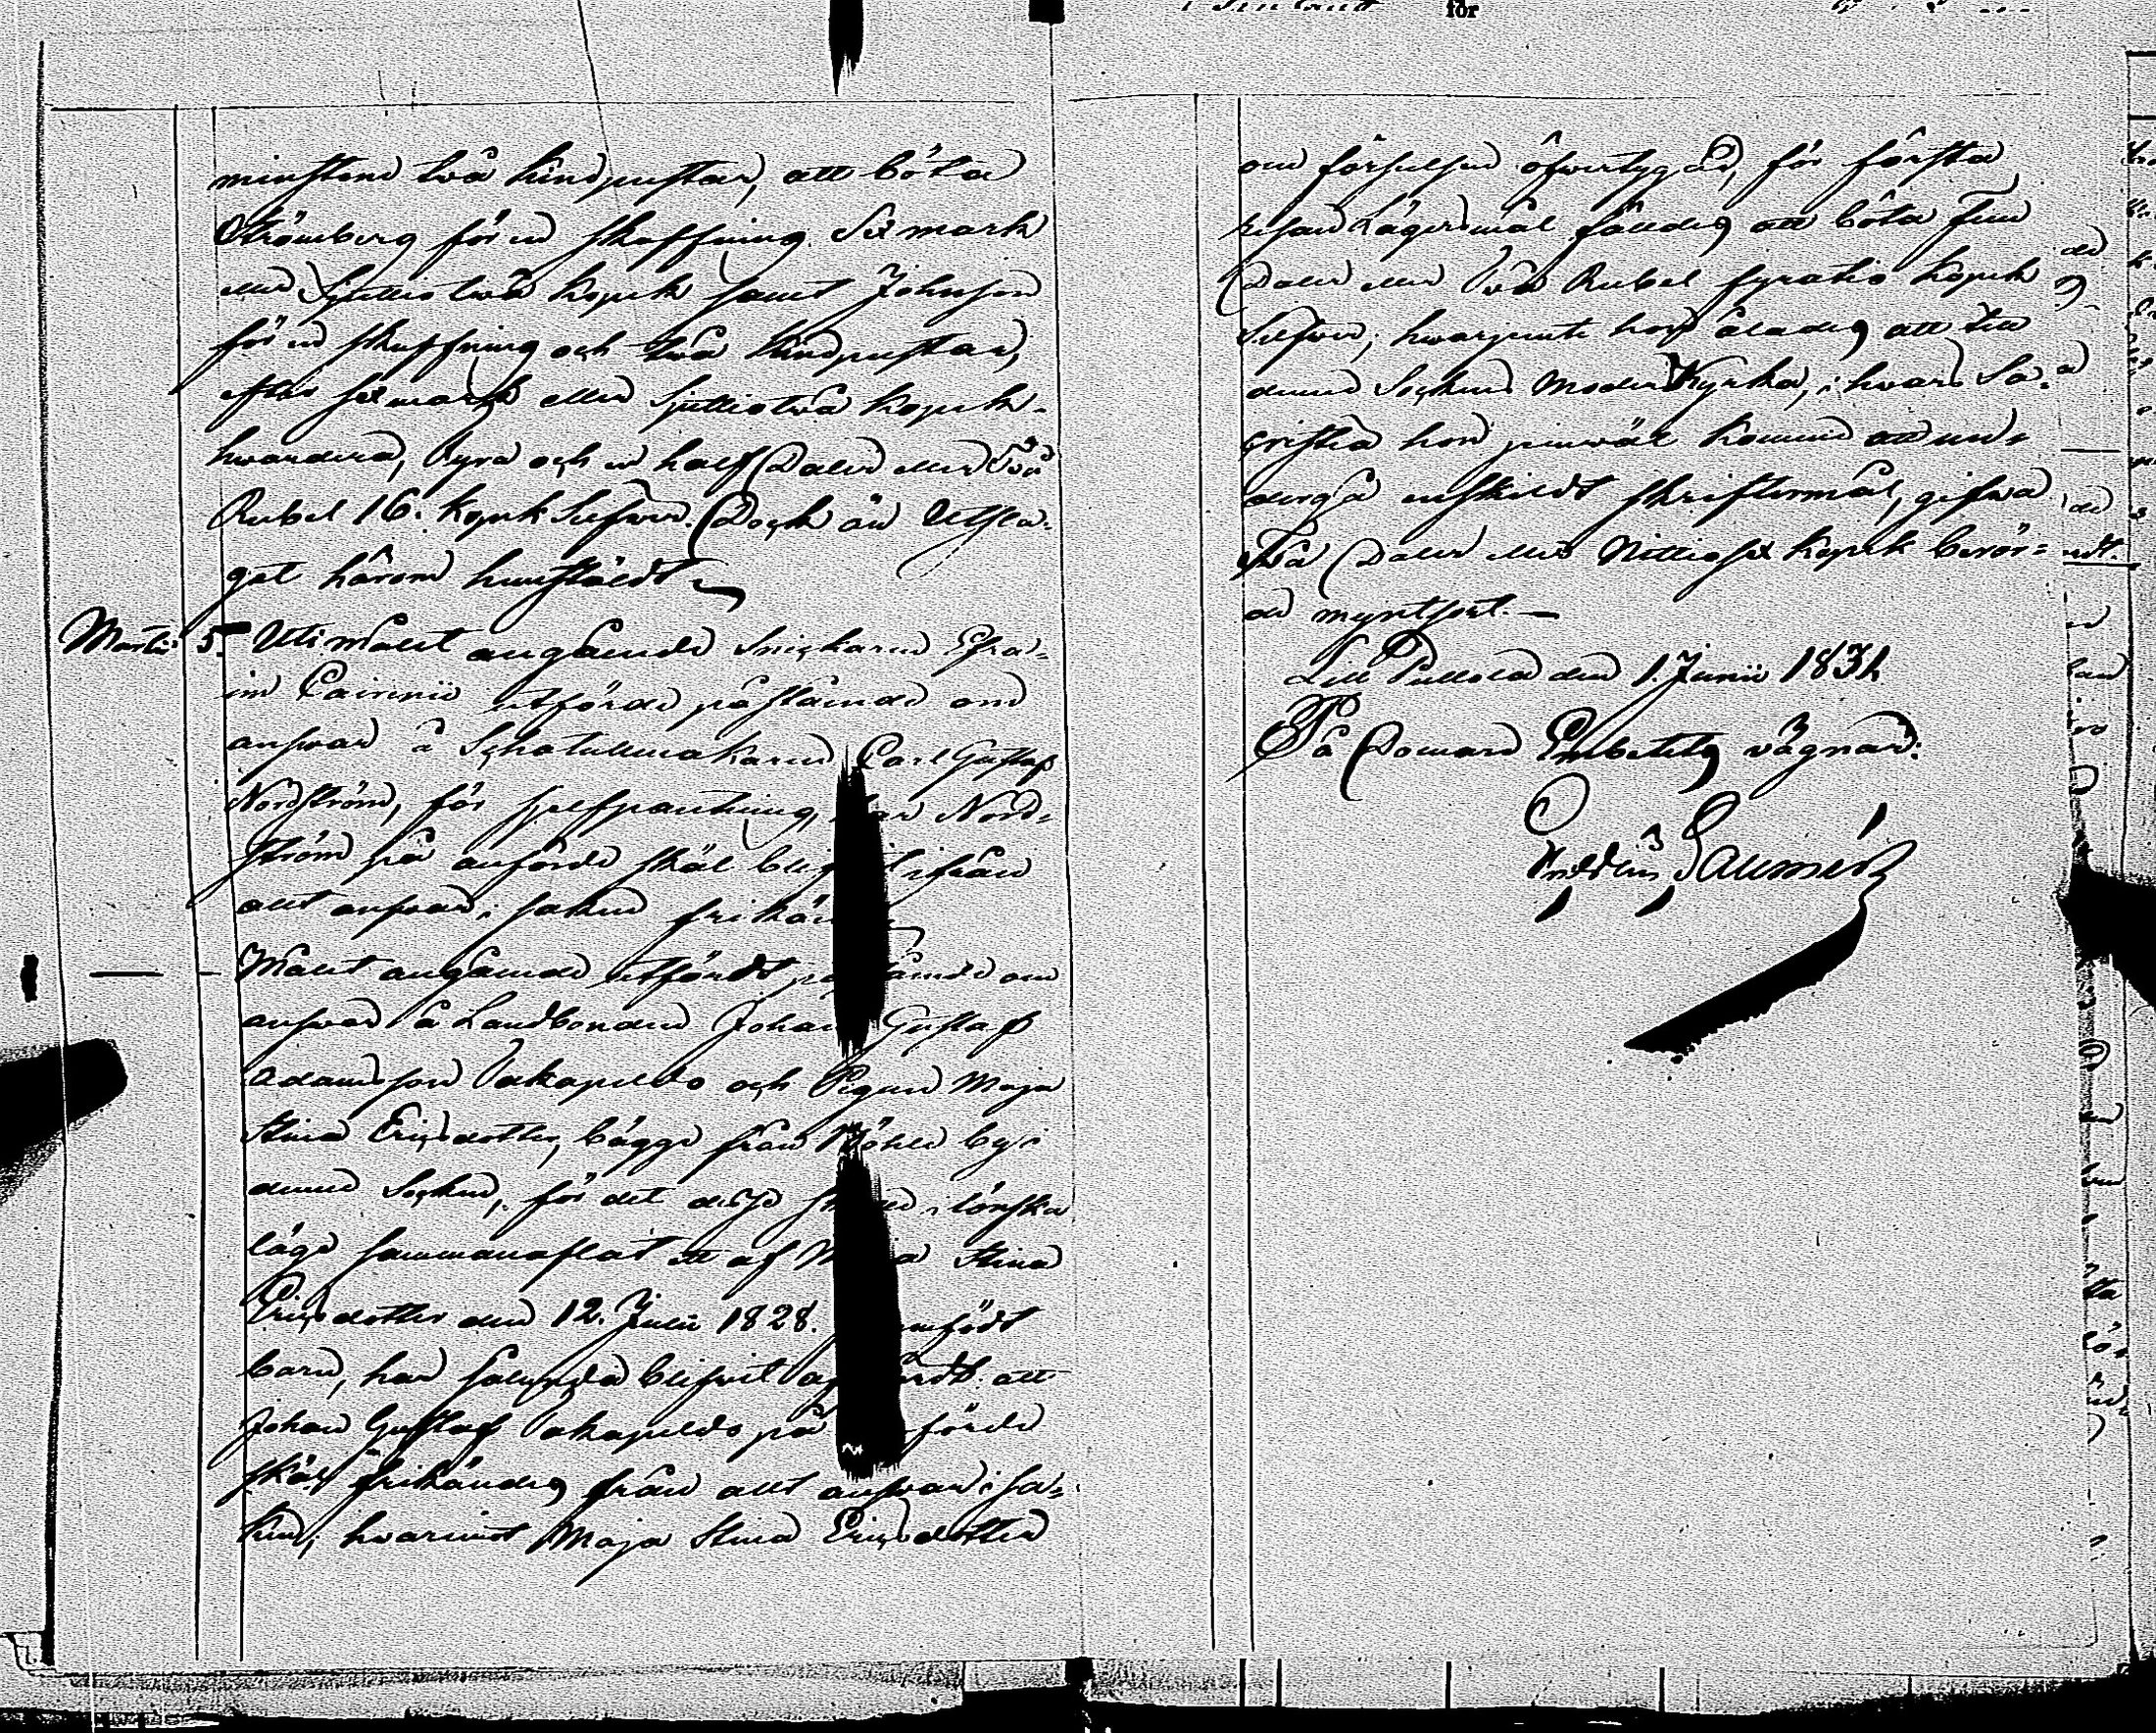 minstone två kindpustar, att böta
Strömberg för en skuffning Sex mark
eller Sjuttiotvå kopek samt Johnsson
för en skuffning och två kindpustar,
efter sex mark eller sjuttiotvå kopek
hvardera, Fyra och en half Daler eller Två
Rubel 16. kopek Silfver. Dock är Utsla-
get härom hemstäldt
Martii 5. Uti målet angående Snickaren Efra-
im Cairenii utförde påstående om
answar å Schatullmakaren Carl Gustaf
Nordström, för sjelfpantning, har Nord-
ström på anförde skäl blifvit ifrån
allt answar i saken frikänd
Målet angående utfördt påstående om
answar å Landbonden Johan Gustaf
Adamsson Takapeldo och Pigan Maja
Stina Ericsdotter, bägge från by i
denne Socken, för det desse skulle i lönska
läge sammanaflat ett af Maja Stina
Ericsdotter den 12. Julii 1828. framfödt
barn, har sålunda blifvit afgjordt: att
Johan Gustaf Takapeldo på anförde
skäl frikändes från allt answar i sa-
ken; hvaremot Maja Stina Ericsdotter
om förseelsen öfvertygad, för första
resan Lägersmål fälldes att böta Fem
Daler eller Två Rubel fyratio kopek
Silfver; hvarjemte hon ålades att till
denne Sockens Moder Kyrka, i hvars Sa-
cristia hon jemväl kommer att un-
dergå enskildt skriftermål, gifva
Två Daler eller Nittiosex kopek berör-
de myntsort.
Lill Pullola den 1. Junii 1831
På Domare Embetets vägnar: